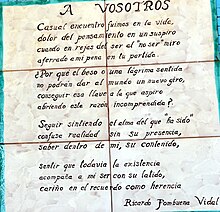 A VOSOTROS
Casual encuentro fuimos en la vida,
dolor del pensamiento en un suspiro
cuando en rejas del ser al "no ser" miro
aferrado a mi pena en tu partida.
¿Por qué el beso o una lágrima sentida
no podrán dar al mundo un nuevo giro,
conseguir esa llave a la que aspiro
abriendo esta razón incomprendida?
Seguir sintiendo el alma del que "ha sido"
confusa realidad sin su presencia,
saber dentro de mi, su contenido,
sentir que todavía la existencia
acompaña a mi ser con su latido,
cariño en el recuerdo como herencia
Ricardo Fombuena Vidal